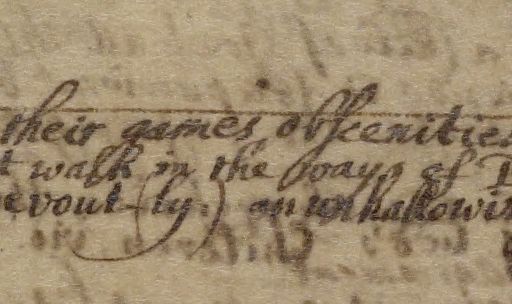 their games obscenities
t walk in the ways of
evout-(ly.) an unhallowi